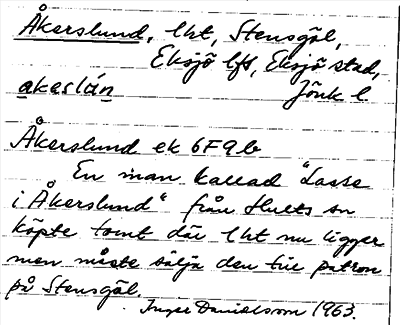 Åkerslund, lht, Stensgöl,
Eksjö lfs, Eksjö stad,
akəslún Jönk l.
Åkerslund ek 6F9b
En man kallad "Lasse
i Åkerslund" från Hults sn
köpte tomt där lht nu ligger
men måste sälja den till patron
på Stensgöl.
Inger Danielsson 1963.